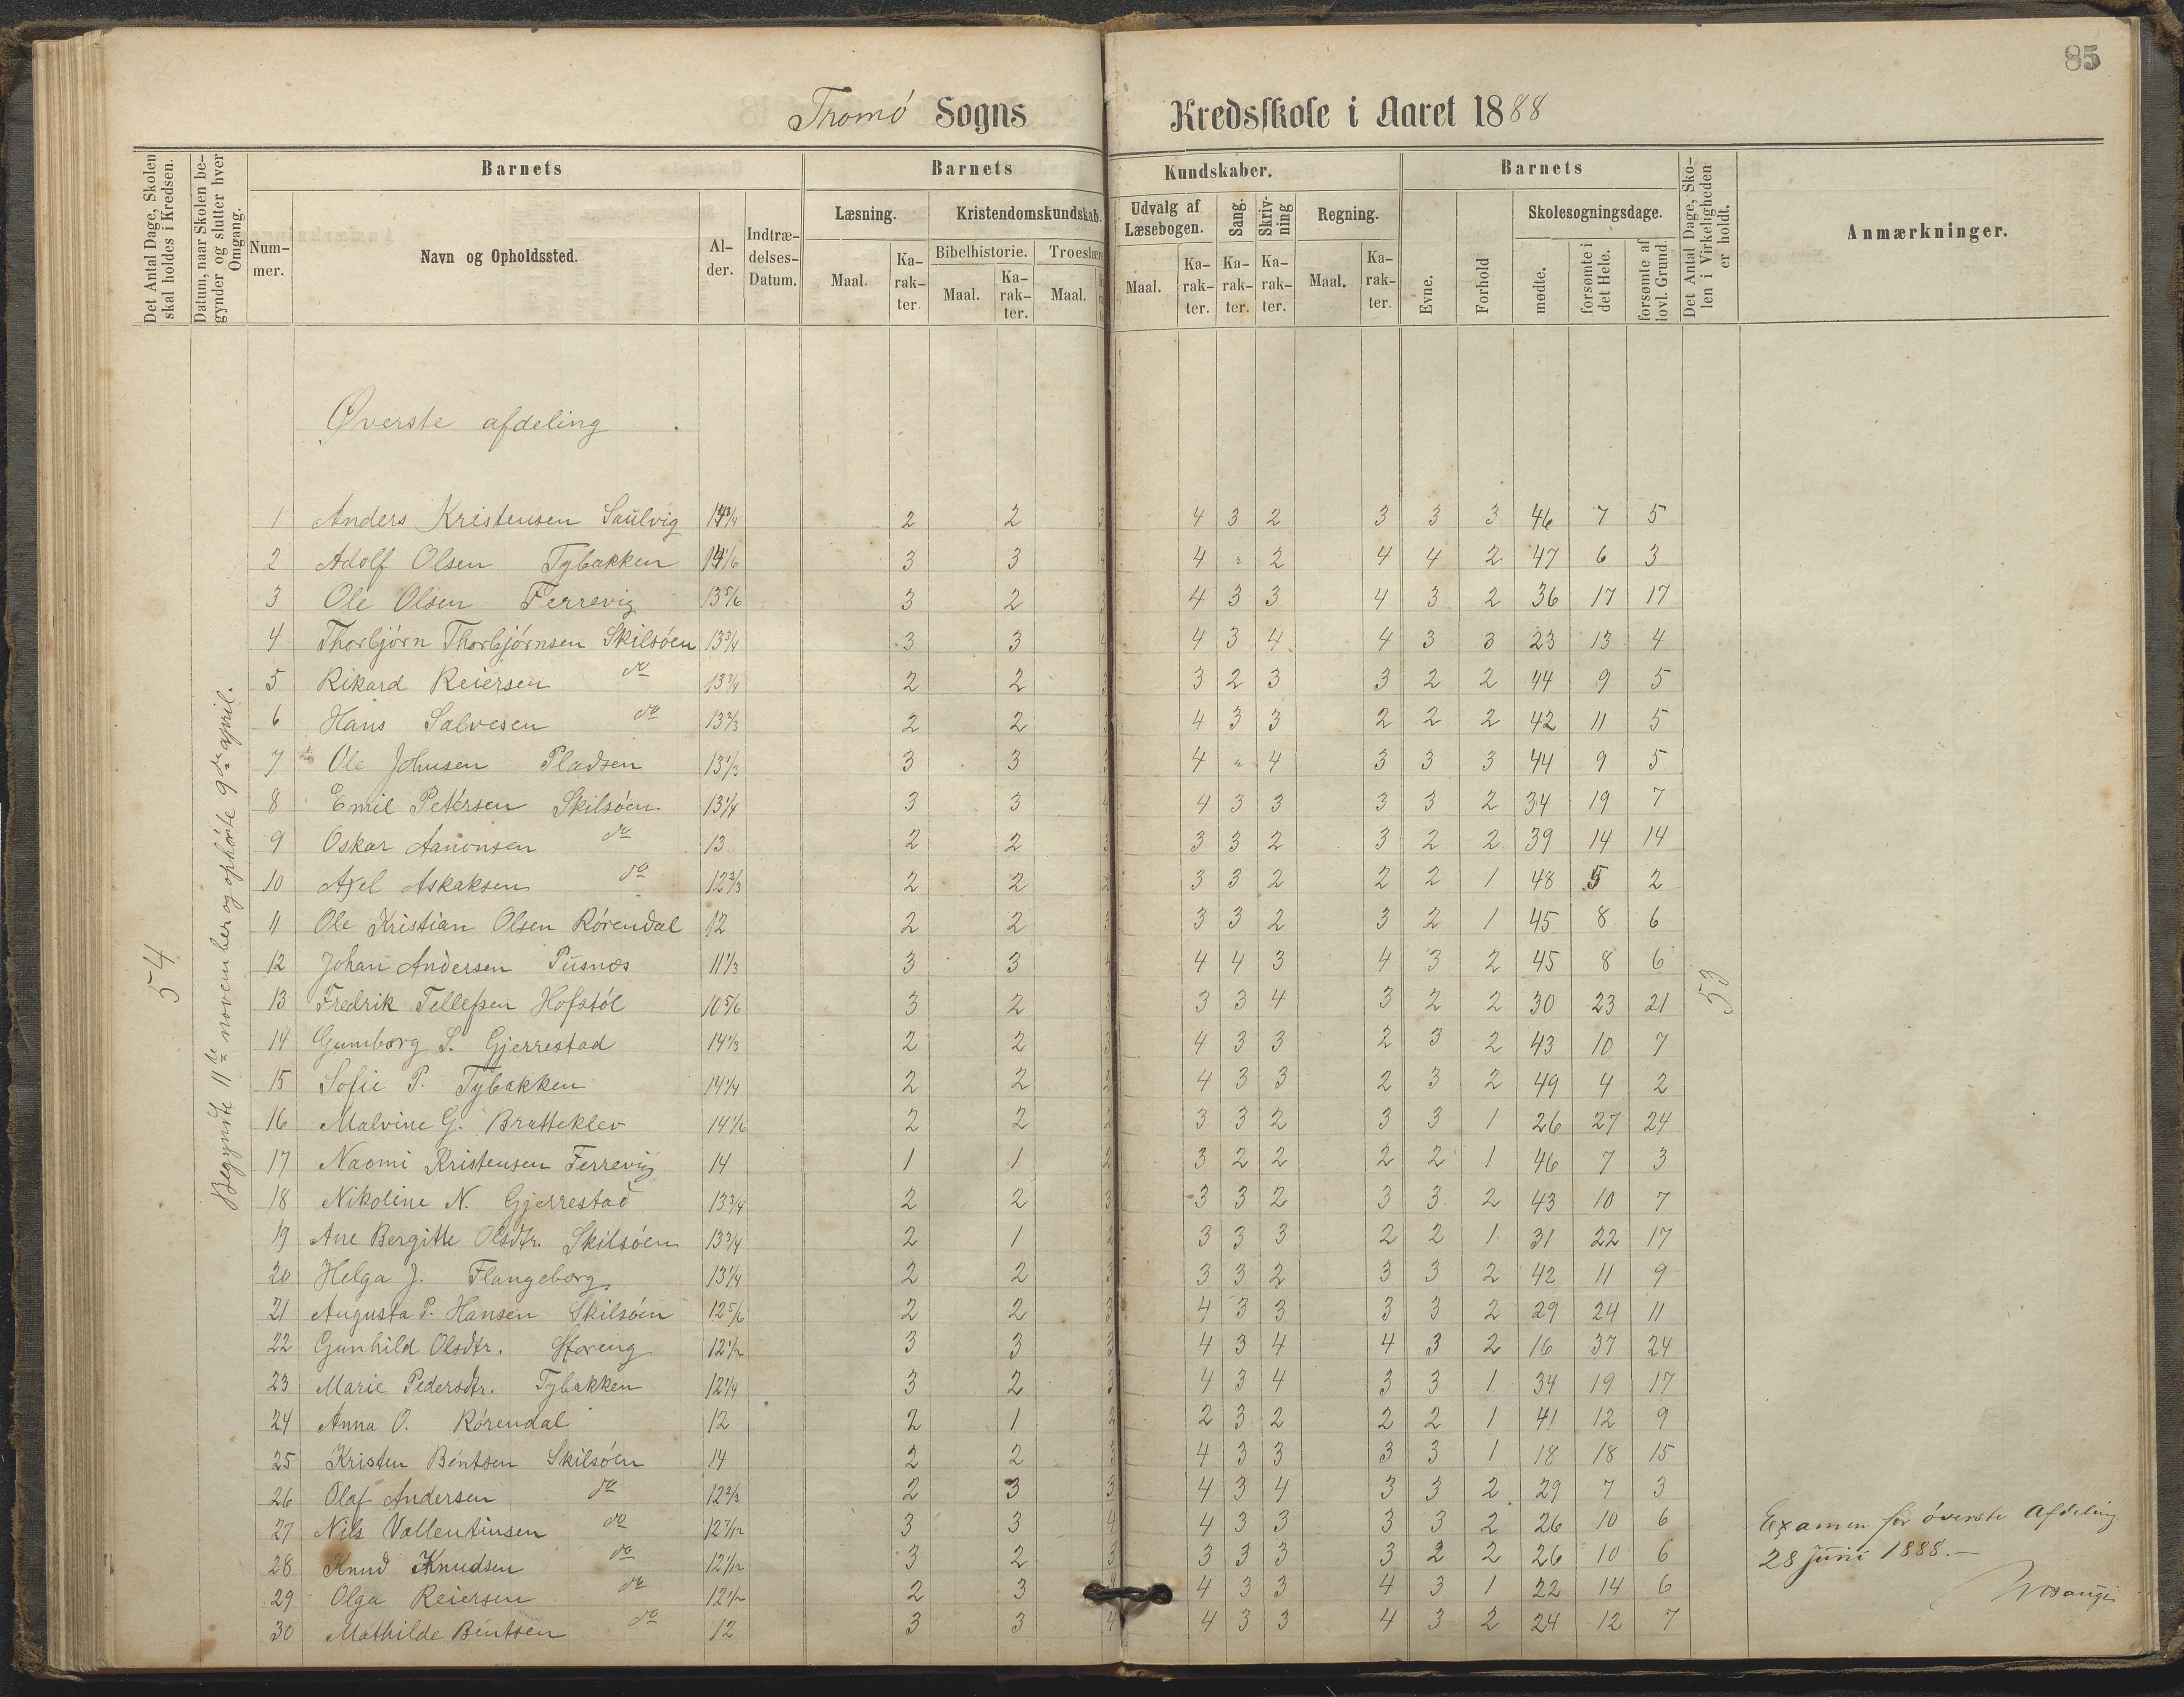 85
Tromø Sogns Kredsskole i Aaret 1888
Det Antal Dage, Skolen skal holdes i Kredsen.
Datum, naar Skolen begynder og slutter hver Omgang.
Barnets
Barnets
Kundskaber.
Barnets
Det Antal Dage, Skolen i Virkeligheden er holdt.
Anmærkninger.
Nummer.
Navn og Opholdssted.
Alder.
Indtrædelses-Datum.
Læsning.
Kristendomskundskab.
Udvalg af Læsebogen.
Sang.
Skrivning
Regning.
Evne.
Forhold
Skolesøgningsdage.
Bibelhistorie.
Maal.
Karakter.
Maal.
Karakter.
Maal.
Maal.
Karakter.
Karakter.
Karakter.
Maal.
Karakter.
mødte.
forsømte i det Hele.
forsømte af lovl. Grund.
Øverste afdeling
54
Begyndte 11te november og ophørte 9de april.
53
1 Anders Kristensen Saulvig 2 2 3 4 3 2 3 3 3 46 7 5
2 Adolf Olsen Tybakken 14 1/6 3 3 4 4 " 2 4 4 2 47 6 3
3 Ole Olsen Ferrevig 13 5/6 3 2 3 4 3 3 4 3 2 36 17 17
4 Thorbjørn Thorbjørnsen Skilsøen 13 3/4 3 3 4 4 3 4 4 3 3 23 13 4
5 Rikard Reiersen do 13 3/4 2 2 3 3 2 3 3 2 2 44 9 5
6 Hans Salvesen do 13 2/3 2 2 3 4 3 3 2 2 2 42 11 5
7 Ole Johnsen Pladsen 13 1/3 3 3 3 4 " 4 3 3 3 44 9 5
8 Emil Petersen Skilsøen 13 1/4 3 3 4 4 3 3 3 3 2 34 19 7
9 Oskar Aanonsen do 13 2 2 3 3 3 2 3 2 2 39 14 14
10 Axel Askaksen do 12 2/3 2 2 2 3 3 2 2 2 1 48 5 2
11 Ole Kristian Olsen Rørendal 12 2 2 3 3 3 2 3 2 1 45 8 6
12 Johan Andersen Pusnes 11 1/3 3 3 4 4 4 3 4 3 2 45 8 6
13 Fredrik Tellefsen Hofstøl 10 5/6 3 2 3 3 3 4 3 2 2 30 23 21
14 Gumborg S. Gjerrestad 14 1/3 2 2 3 4 3 3 2 3 2 43 10 7
15 Sofie P. Tybakken 14 1/4 2 2 2 4 3 3 2 3 2 49 4 2
16 Malvine G. Bratteklev 14 1/6 2 2 2 3 3 2 3 3 1 26 27 24
17 Naomi Kristensen Ferrevig 14 1 1 2 3 2 2 2 2 1 46 7 3
18 Nikoline N. Gjerrestad 13 3/4 2 2 3 3 3 2 3 3 2 43 10 7
19 Ane Bergitte Olsdtr. Skilsøen 13 3/4 2 1 2 3 3 3 2 2 1 31 22 17
20 Helga J. Flangeborg 13 1/4 2 2 3 3 3 2 3 3 2 42 11 9
21 Augusta P. Hansen Skilsøen 12 5/6 2 2 3 4 3 3 3 3 2 29 24 11
22 Gunhild Olsdtr. Storeng 12 1/2 3 3 3 4 3 4 4 3 2 16 37 24
23 Marie Pedersdtr. Tybakken 12 1/4 3 2 3 4 3 4 3 3 1 34 19 17
24 Anna O. Rørendal 12 2 1 2 2 3 2 2 2 1 41 12 9
25 Kristen Bentsen Skilsøen 14 2 2 3 4 3 3 3 3 1 18 18 15
26 Olaf Andersen do 12 2/3 2 3 3 4 3 4 3 3 2 29 7 3
27 Nils Vallentinsen do 12 7/12 3 3 4 4 3 3 3 3 2 26 10 6
28 Knud Knudsen do 12 1/12 3 2 3 3 3 3 3 2 2 26 10 6
29 Olga Reiersen do 12 1/2 2 3 4 3 3 4 3 1 22 14 6
30 Mathilde Bentsen do 12 3 3 4 4 3 3 4 3 2 24 12 7
Examen for øverste Afdeling
28 Juni 1888.–